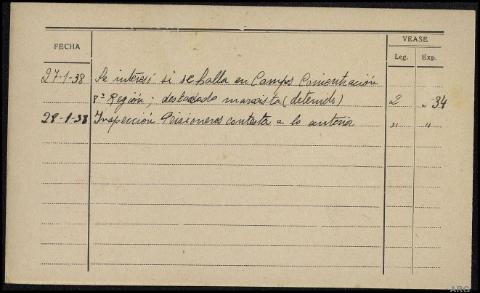 FECHA
VEASE
Leg. Exp.
27-1-38 Se interesó si se halla en Campos Concentración
8ª Región; destacado marxista (detenido) 2 " 34
29-1-38 Inspección Prisioneros contesta a lo anterior " "
ARG